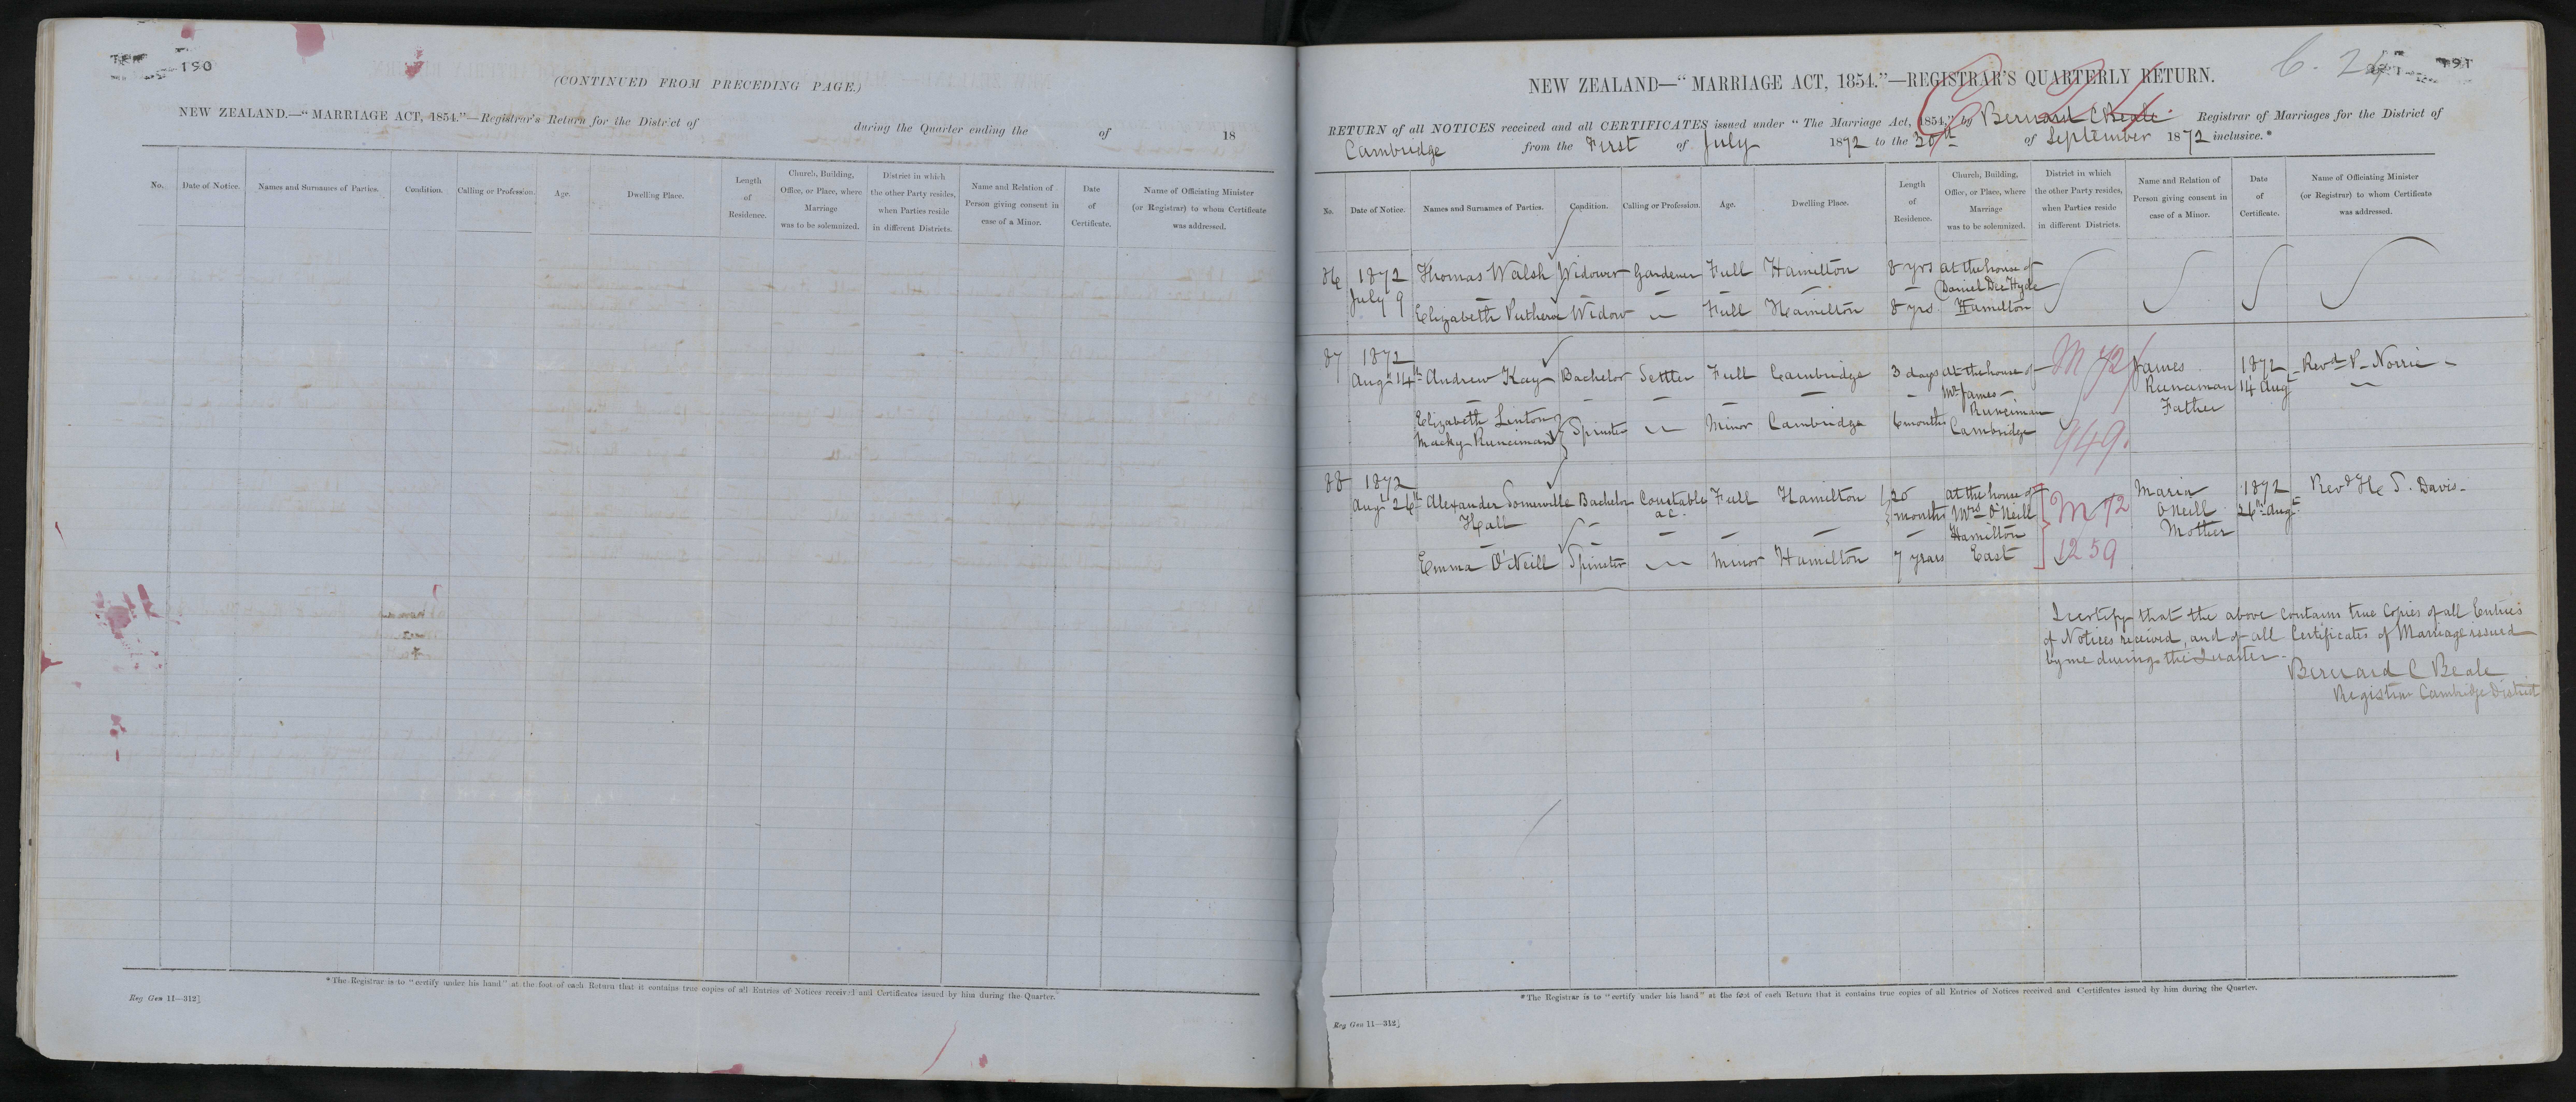 190
(CONTINUED FROM PRECEDING PAGE.)
NEW ZEALAND.—"MARRIAGE ACT, 1854."—Registrar's Return for the District of during the Quarter ending the of 18
No. Date of Notice. Names and Surnames of Parties. Condition. Calling or Profession. Age. Dwelling Place. Length of Residence. Church, Building, Office, or Place, where Marriage was to be solemnized. District in which the other Party resides, when Parties reside in different Districts. Name and Relation of Person giving consent in case of a Minor. Date of Certificate. Name of Officiating Minister (or Registrar) to whom Certificate was addressed.
*The Registrar is to "certify under his hand" at the foot of each Return that it contains true copies of all Entries of Notices received and Certificates issued by him during the Quarter.
Reg Gen 11—312]
191
NEW ZEALAND—"MARRIAGE ACT, 1854."—REGISTRAR'S QUARTERLY RETURN.
RETURN of all NOTICES received and all CERTIFICATES issued under "The Marriage Act, 1854," by Bernard C Beale Registrar of Marriages for the District of
Cambridge from the First of July 1872 to the 30th of September 1872 inclusive.*
No. Date of Notice. Names and Surnames of Parties. Condition. Calling or Profession. Age. Dwelling Place. Length of Residence. Church, Building, Office, or Place, where Marriage was to be solemnized. District in which the other Party resides, when Parties reside in different Districts. Name and Relation of Person giving consent in case of a Minor. Date of Certificate. Name of Officiating Minister (or Registrar) to whom Certificate was addressed.
86 1872 Thomas Walsh Widower Gardener Full Hamilton 8 yrs at the house of
July 9 Daniel Dee Hyde
Elizabeth Widow Full Hamilton 8 yrs Hamilton
87 1872 M 72 James 1872 Revd P. Norrie
Augt 14th Andrew Kay Bachelor Settler Full Cambridge 3 days at the house of Runciman 14 Augt
Mr James Father
Elizabeth Linton Runciman
Macky Runciman Spinster Minor Cambridge 6 months Cambridge 949.
88 1872 20 at the house of Maria 1872 Revd H. S. Davis
Augt 26th Alexander Somerville Bachelor Constable Full Hamilton months Mrs O'Neill M 72 O'Neill 26th Augt
Hall a.c. Hamilton Mother
Emma O'Neill Spinster Minor Hamilton 7 years East 1259
I certify that the above contains true Copies of all Entries
of Notices received, and of all Certificates of Marriage issued
by me during the Quarter.
Bernard C Beale
Registrar Cambridge District
*The Registrar is to "certify under his hand" at the foot of each Return that it contains true copies of all Entries of Notices received and Certificates issued by him during the Quarter.
Reg Gen 11—312]